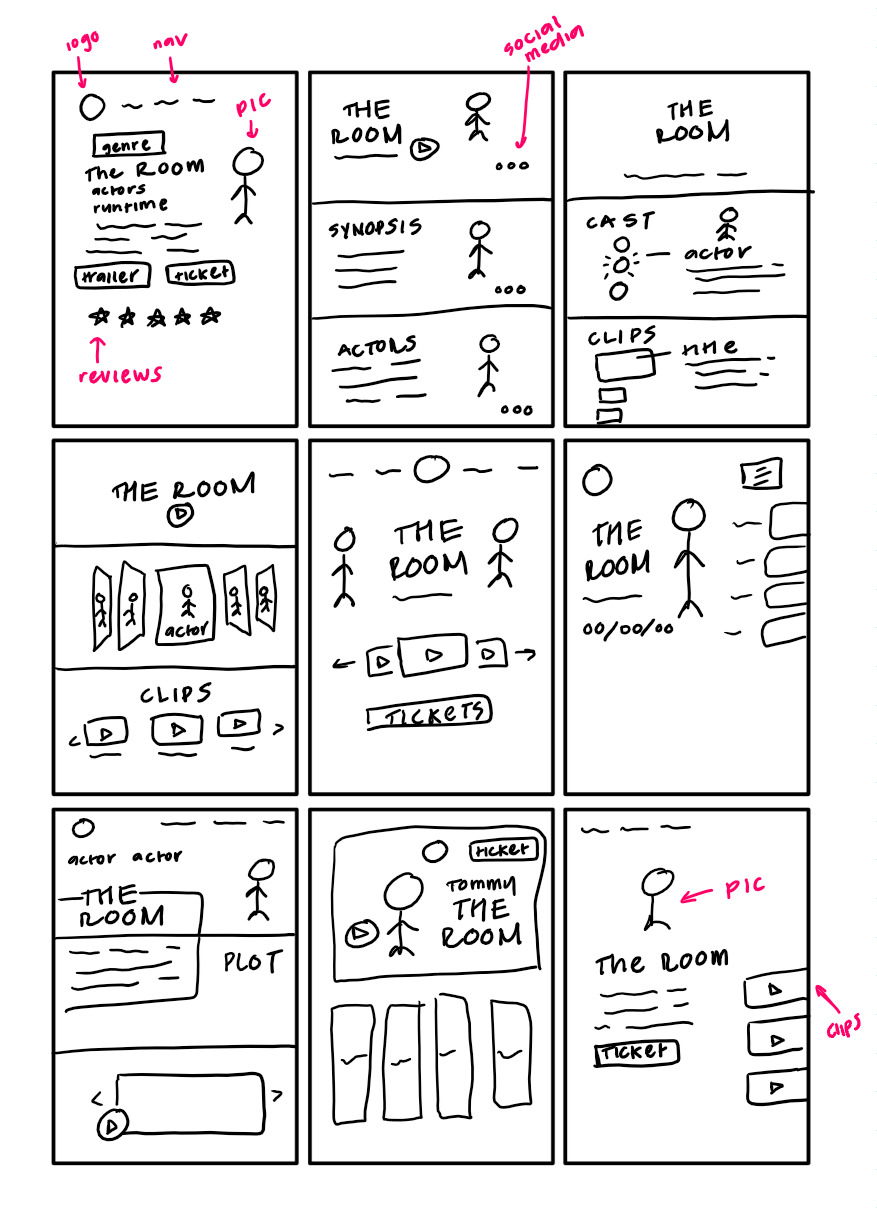 logo
nav
social
media
pic
genre
The Room
actors
runtime
trailer
ticket
reviews
THE
ROOM
SYNOPSIS
ACTORS
THE
ROOM
CAST
actor
CLIPS
title
THE ROOM
actor
CLIPS
THE
ROOM
TICKETS
THE
ROOM
00/00/00
actor actor
THE
ROOM
PLOT
TICKET
Tommy
THE
ROOM
PIC
The Room
TICKET
clips